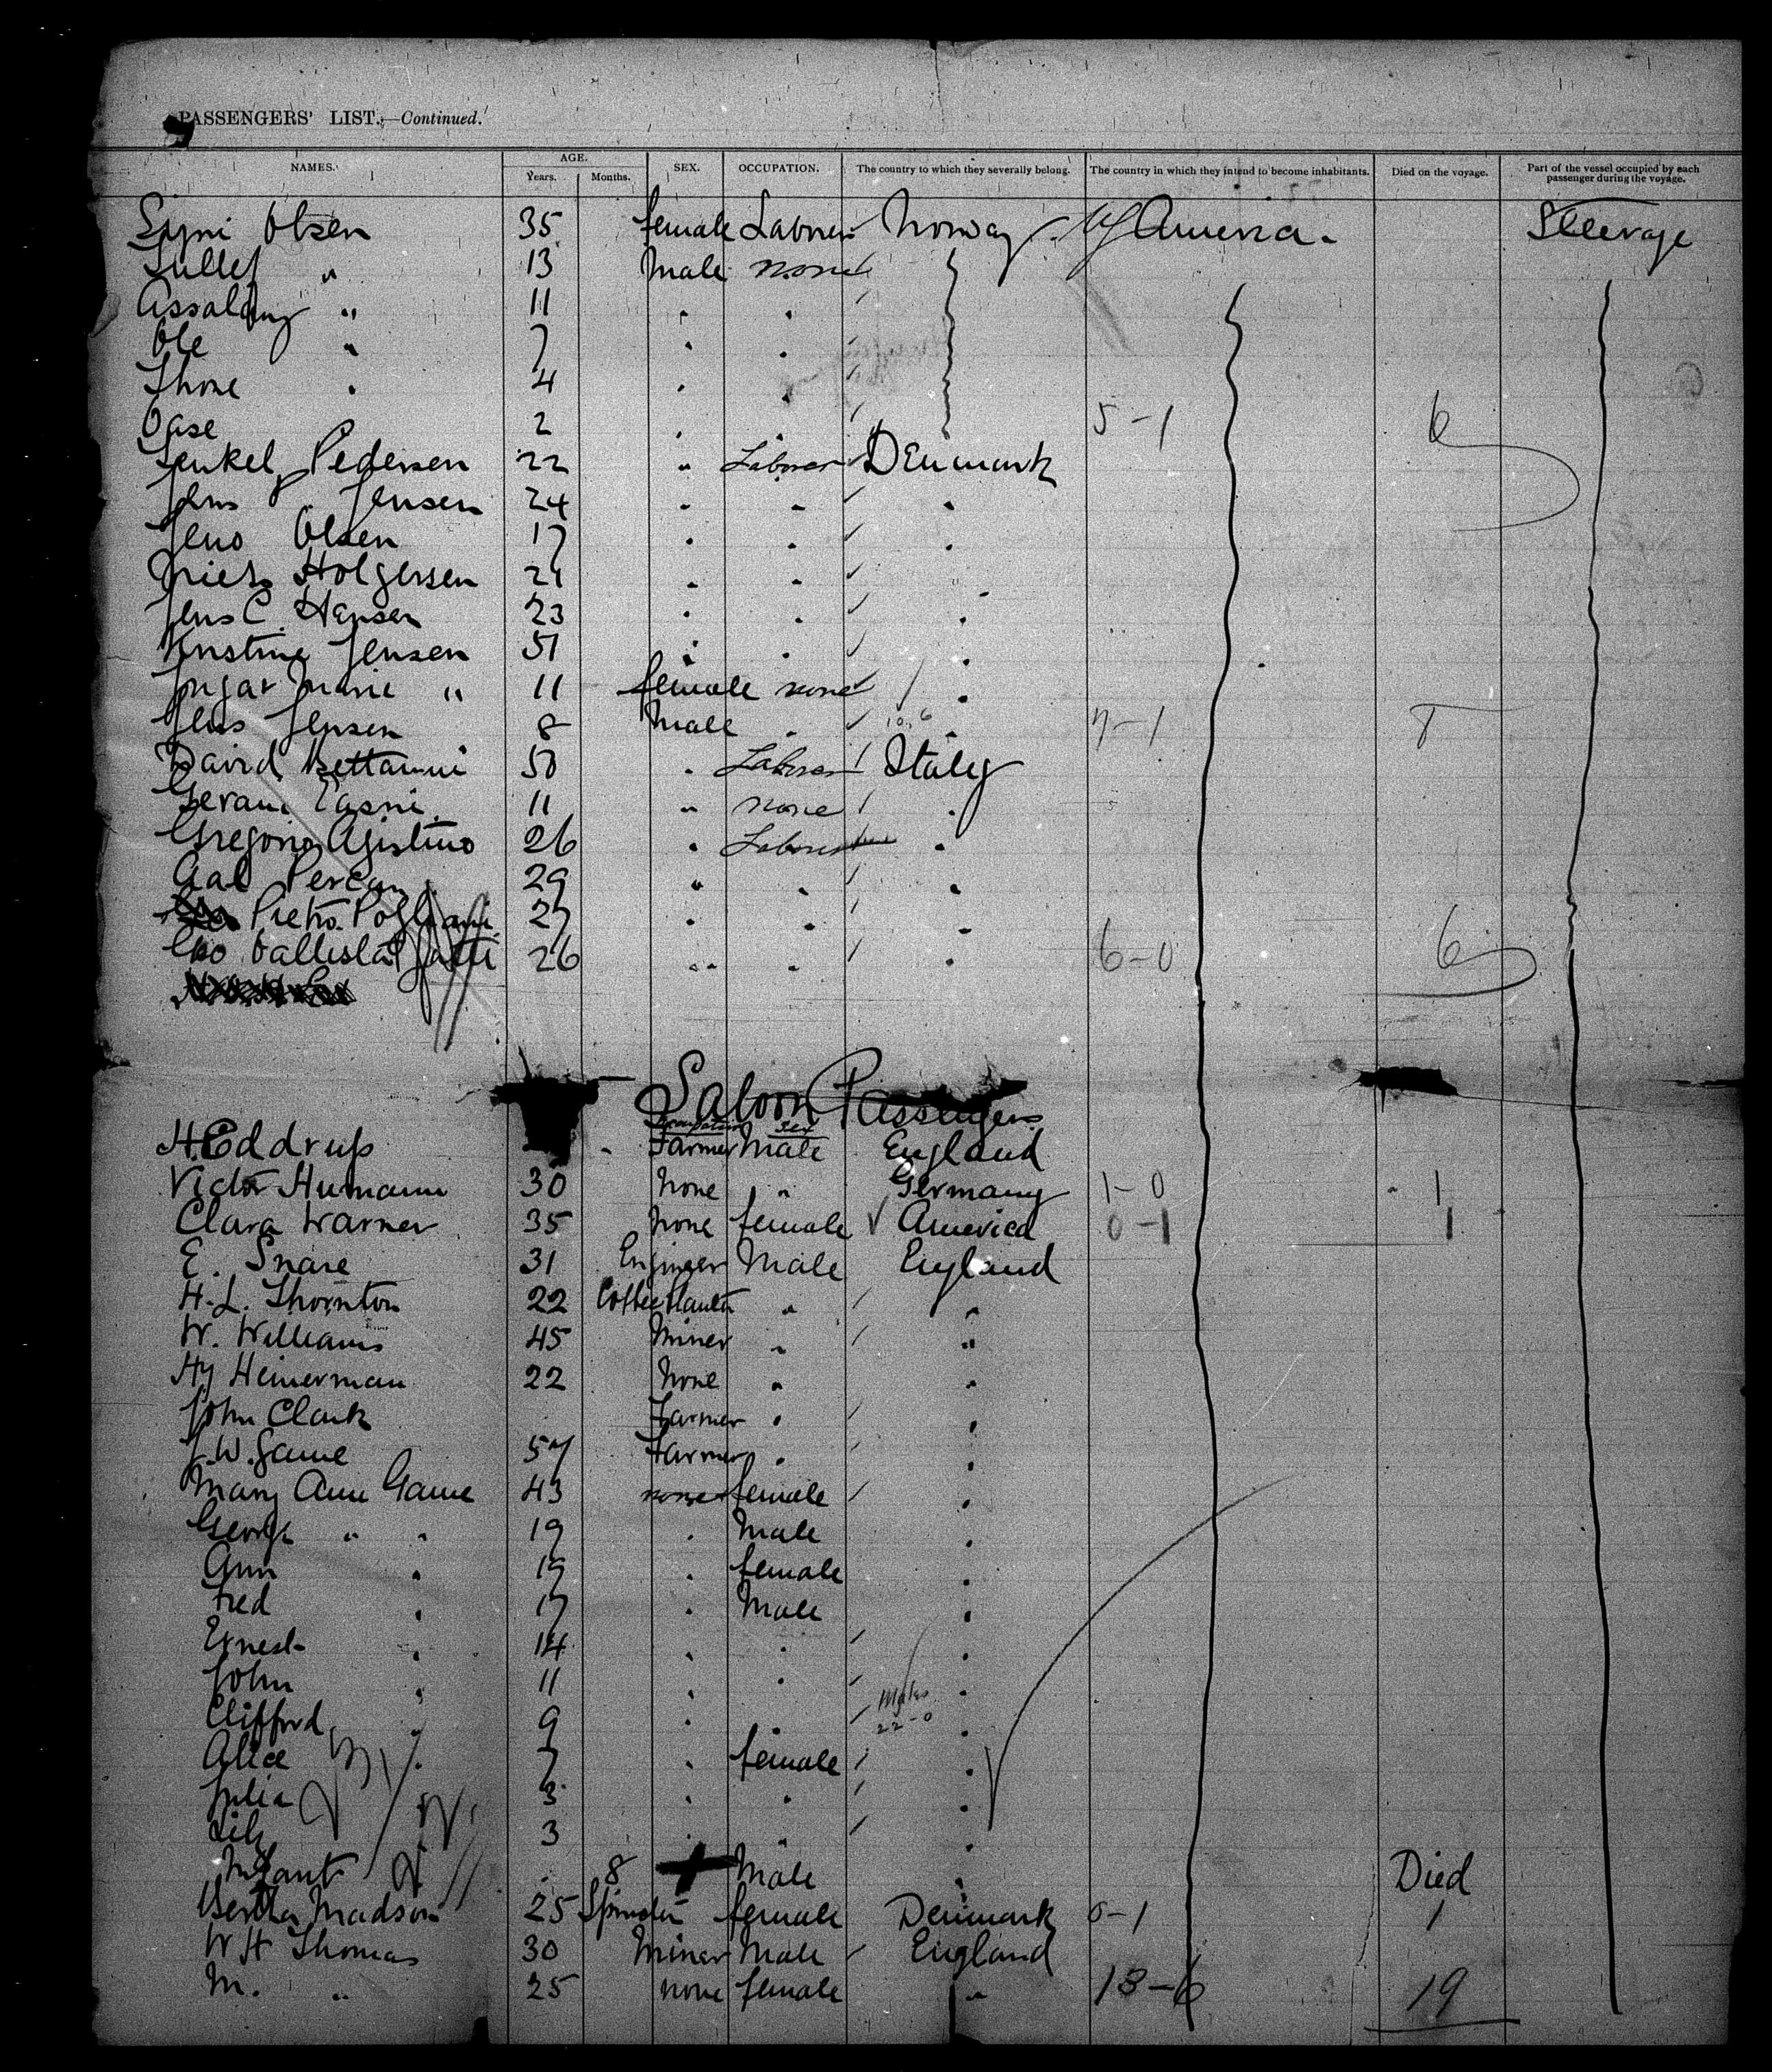 PASSENGERS' LIST.—Continued.
NAMES. AGE. Years. Months. SEX. OCCUPATION. The country to which they severally belong. The country in which they intend to become inhabitants. Died on the voyage. Part of the vessel occupied by each passenger during the voyage.
Olsen 35 female Laborer Norway America. Steerage
" 13 Male none
" 11 . .
Ole " 7 . .
Thone . 4 . .
2 . . 5-1 6
Pedersen 22 " Laborer Denmark
Jens P. Jensen 24 . . .
Jens Olsen 17 . . .
Niels Holgersen 21 . . .
Jens C. Hansen 23 . . .
Kirstine Jensen 51 . . .
Marie " 11 female none .
Jens Jensen 8 Male . 10,6 . 7-1 8
David 50 . Laborer Italy
11 " none .
Gregorio Agistino 26 . Laborer .
29 " . .
Pietro 27 . . .
26 " . . 6-0 6
Saloon Passengers
Occupation Sex
H. Eddrup . Farmer Male England
Victor Humann 30 None " Germany 1-0 1
Clara Warner 35 None female America 0-1 1
E. Snare 31 Enginer Male England
H. L. Thornton 22 Coffee Planter " "
W. Williams 45 Miner " "
Hy Heinerman 22 None " "
John Clark Farmer . .
J. W. Game 57 Farmer . .
Mary Ann Game 43 none female .
George " " 19 . Male .
Ann . 19 . female .
Fred . 17 . Male .
Ernest . 14 . . .
John . 11 . . .
Clifford . 9 . . Males .
22-0
Alice . 7 . female .
Julia 3 . . .
Lily 3 . . .
Infant . 8 Male . Died
Bertha Madson 25 Spinster female Denmark 0-1 1
W H Thomas 30 Miner Male England
M. " 25 none female " 13-6 19